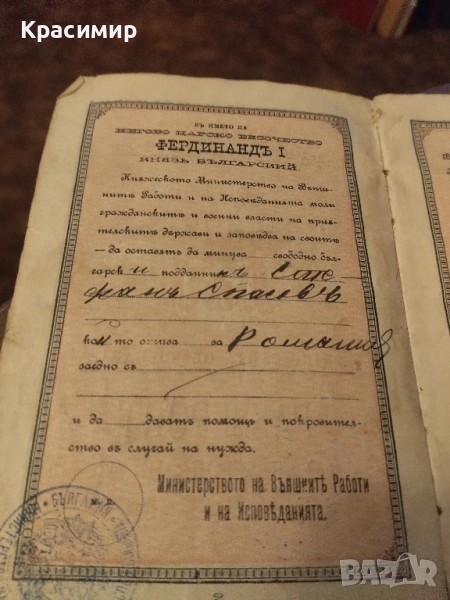 Красимир
ВЪ ИМЕТО НА
НЕГОВО ЦАРСКО ВИСОЧЕСТВО
ФЕРДИНАНДЪ I
КНЯЗЬ БЪЛГАРСКИЙ.
Княжеското Министерство на Външ-
нитѣ Работи и на Исповѣданията моли
гражданскитѣ и военни власти на прия-
телскитѣ държави и заповѣдва на своитѣ
—да оставятъ да минува свободно бъл-
гарски подданикъ Сте-
фанъ Спасовъ
който отива за Романия
заедно съ
и да даватъ помощь и покровител-
ство въ случай на нужда.
Министерството на Външнитѣ Работи
и на Исповѣданията.
БЪЛГАРИЯ
bazar.bg